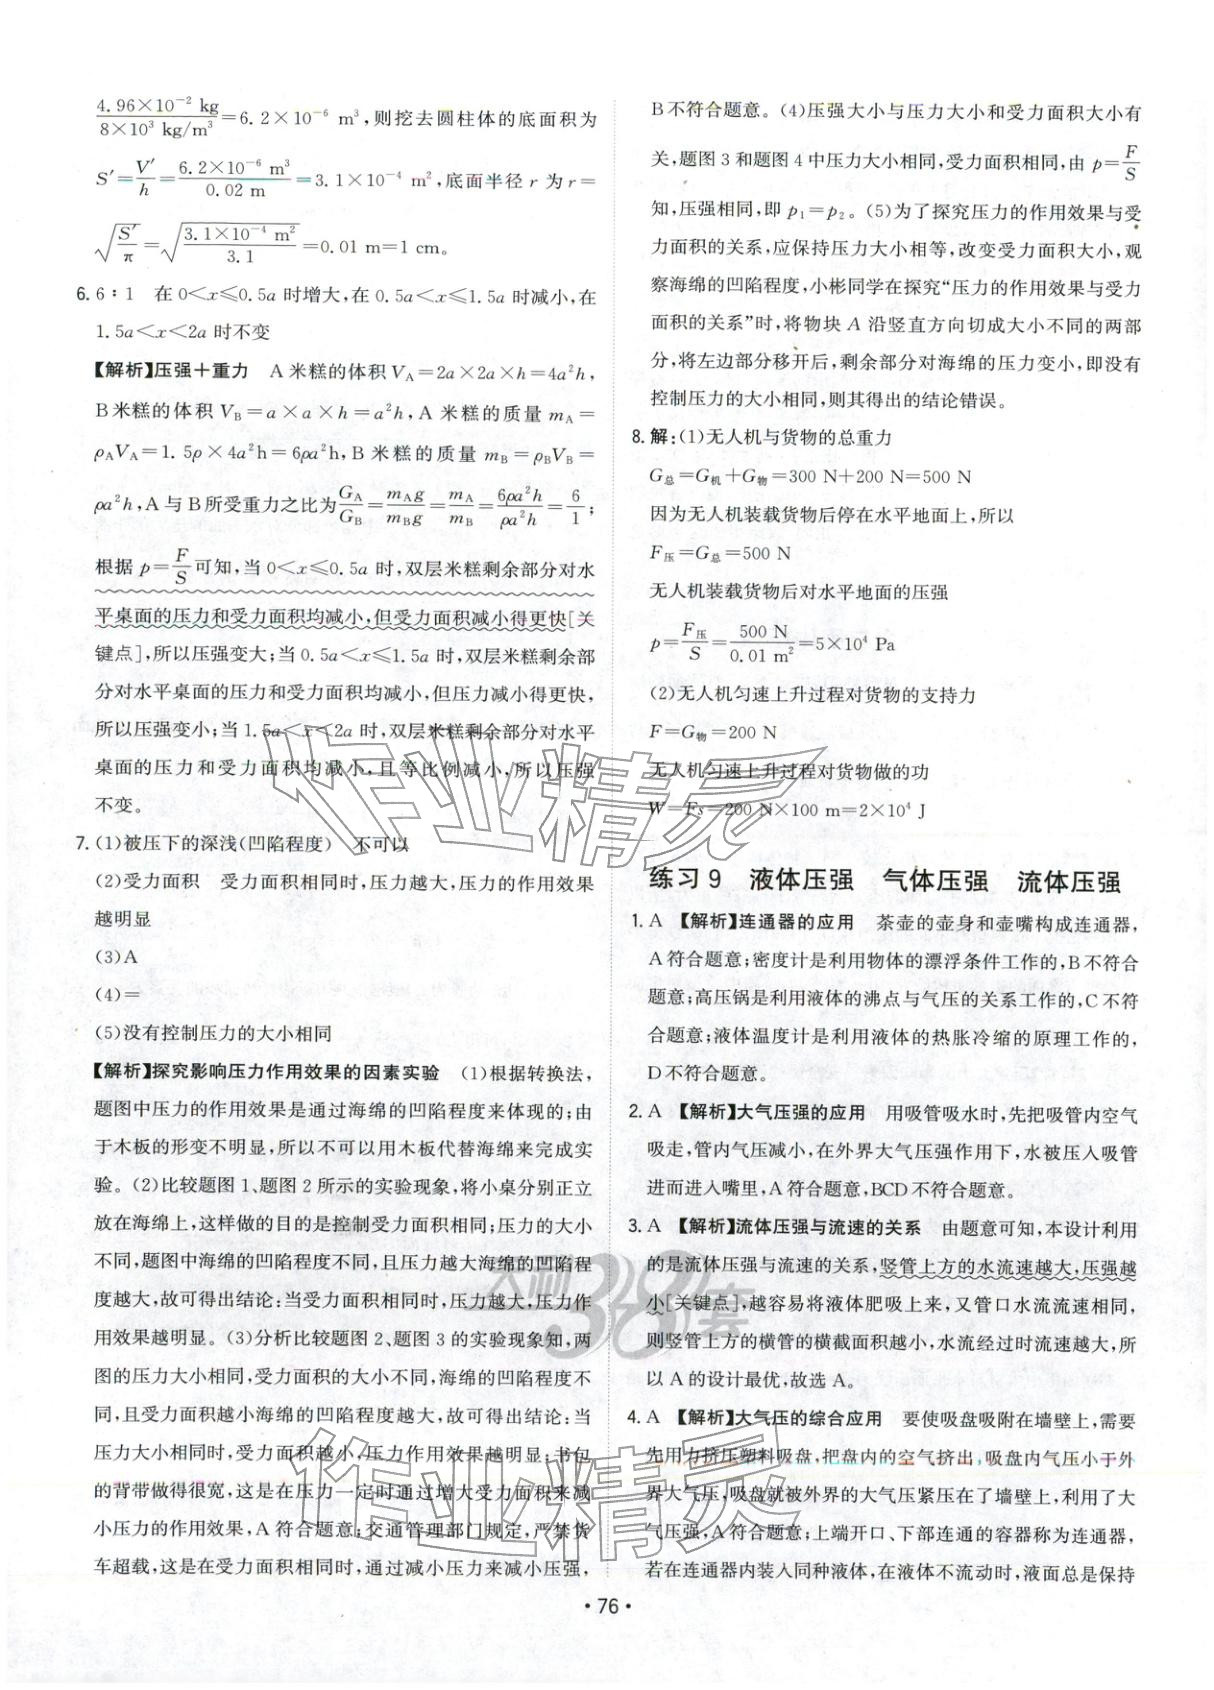 4.96×10⁻² kg / 8×10³ kg/m³ =6.2×10⁻⁶ m³,则挖去圆柱体的底面积为
S′=V′/h=6.2×10⁻⁶ m³/0.02 m=3.1×10⁻⁴ m²,底面半径 r 为 r=
√(S′/π)=√(3.1×10⁻⁴ m²/3.1)=0.01 m=1 cm。
6. 6∶1 在 0<x≤0.5a 时增大,在 0.5a<x≤1.5a 时减小,在
1.5a<x<2a 时不变
【解析】压强+重力 A 米糕的体积 V_A=2a×2a×h=4a²h,
B 米糕的体积 V_B=a×a×h=a²h,A 米糕的质量 m_A=
ρ_AV_A=1.5ρ×4a²h=6ρa²h,B 米糕的质量 m_B=ρ_BV_B=
ρa²h,A 与 B 所受重力之比为 G_A/G_B=m_Ag/m_Bg=m_A/m_B=6ρa²h/ρa²h=6/1;
根据 p=F/S 可知,当 0<x≤0.5a 时,双层米糕剩余部分对水
平桌面的压力和受力面积均减小,但受力面积减小得更快[关
键点],所以压强变大;当 0.5a<x≤1.5a 时,双层米糕剩余部
分对水平桌面的压力和受力面积均减小,但压力减小得更快,
所以压强变小;当 1.5a<x<2a 时,双层米糕剩余部分对水平
桌面的压力和受力面积均减小,且等比例减小,所以压强
不变。
7. (1)被压下的深浅(凹陷程度) 不可以
(2)受力面积 受力面积相同时,压力越大,压力的作用效果
越明显
(3)A
(4)=
(5)没有控制压力的大小相同
【解析】探究影响压力作用效果的因素实验 (1)根据转换法,
题图中压力的作用效果是通过海绵的凹陷程度来体现的;由
于木板的形变不明显,所以不可以用木板代替海绵来完成实
验。(2)比较题图 1、题图 2 所示的实验现象,将小桌分别正立
放在海绵上,这样做的目的是控制受力面积相同;压力的大小
不同,题图中海绵的凹陷程度不同,且压力越大海绵的凹陷程
度越大,故可得出结论:当受力面积相同时,压力越大,压力作
用效果越明显。(3)分析比较题图 2、题图 3 的实验现象知,两
图的压力大小相同,受力面积的大小不同,海绵的凹陷程度不
同,且受力面积越小海绵的凹陷程度越大,故可得出结论:当
压力大小相同时,受力面积越小,压力作用效果越明显;书包
的背带做得很宽,这是在压力一定时通过增大受力面积来减
小压力的作用效果,A 符合题意;交通管理部门规定,严禁货
车超载,这是在受力面积相同时,通过减小压力来减小压强,
B 不符合题意。(4)压强大小与压力大小和受力面积大小有
关,题图 3 和题图 4 中压力大小相同,受力面积相同,由 p=F/S
知,压强相同,即 p₁=p₂。(5)为了探究压力的作用效果与受
力面积的关系,应保持压力大小相等,改变受力面积大小,观
察海绵的凹陷程度,小彬同学在探究“压力的作用效果与受力
面积的关系”时,将物块 A 沿竖直方向切成大小不同的两部
分,将左边部分移开后,剩余部分对海绵的压力变小,即没有
控制压力的大小相同,则其得出的结论错误。
8. 解:(1)无人机与货物的总重力
G总=G机+G物=300 N+200 N=500 N
因为无人机装载货物后停在水平地面上,所以
F压=G总=500 N
无人机装载货物后对水平地面的压强
p=F压/S=500 N/0.01 m²=5×10⁴ Pa
(2)无人机匀速上升过程对货物的支持力
F=G物=200 N
无人机匀速上升过程对货物做的功
W=Fs=200 N×100 m=2×10⁴ J
练习 9 液体压强 气体压强 流体压强
1. A 【解析】连通器的应用 茶壶的壶身和壶嘴构成连通器,
A 符合题意;密度计是利用物体的漂浮条件工作的,B 不符合
题意;高压锅是利用液体的沸点与气压的关系工作的,C 不符
合题意;液体温度计是利用液体的热胀冷缩的原理工作的,
D 不符合题意。
2. A 【解析】大气压强的应用 用吸管吸水时,先把吸管内空气
吸走,管内气压减小,在外界大气压强作用下,水被压入吸管
进而进入嘴里,A 符合题意,BCD 不符合题意。
3. A 【解析】流体压强与流速的关系 由题意可知,本设计利用
的是流体压强与流速的关系,竖管上方的水流速越大,压强越
小[关键点],越容易将液体肥吸上来,又管口水流流速相同,
则竖管上方的横管的横截面积越小,水流经过时流速越大,所
以 A 的设计最优,故选 A。
4. A 【解析】大气压的综合应用 要使吸盘吸附在墙壁上,需要
先用力挤压塑料吸盘,把盘内的空气挤出,吸盘内气压小于外
界大气压,吸盘就被外界的大气压紧压在了墙壁上,利用了大
气压强,A 符合题意;上端开口、下部连通的容器称为连通器,
若在连通器内装入同种液体,在液体不流动时,液面总是保持
·76·
作业精灵
天利38套
作业精灵